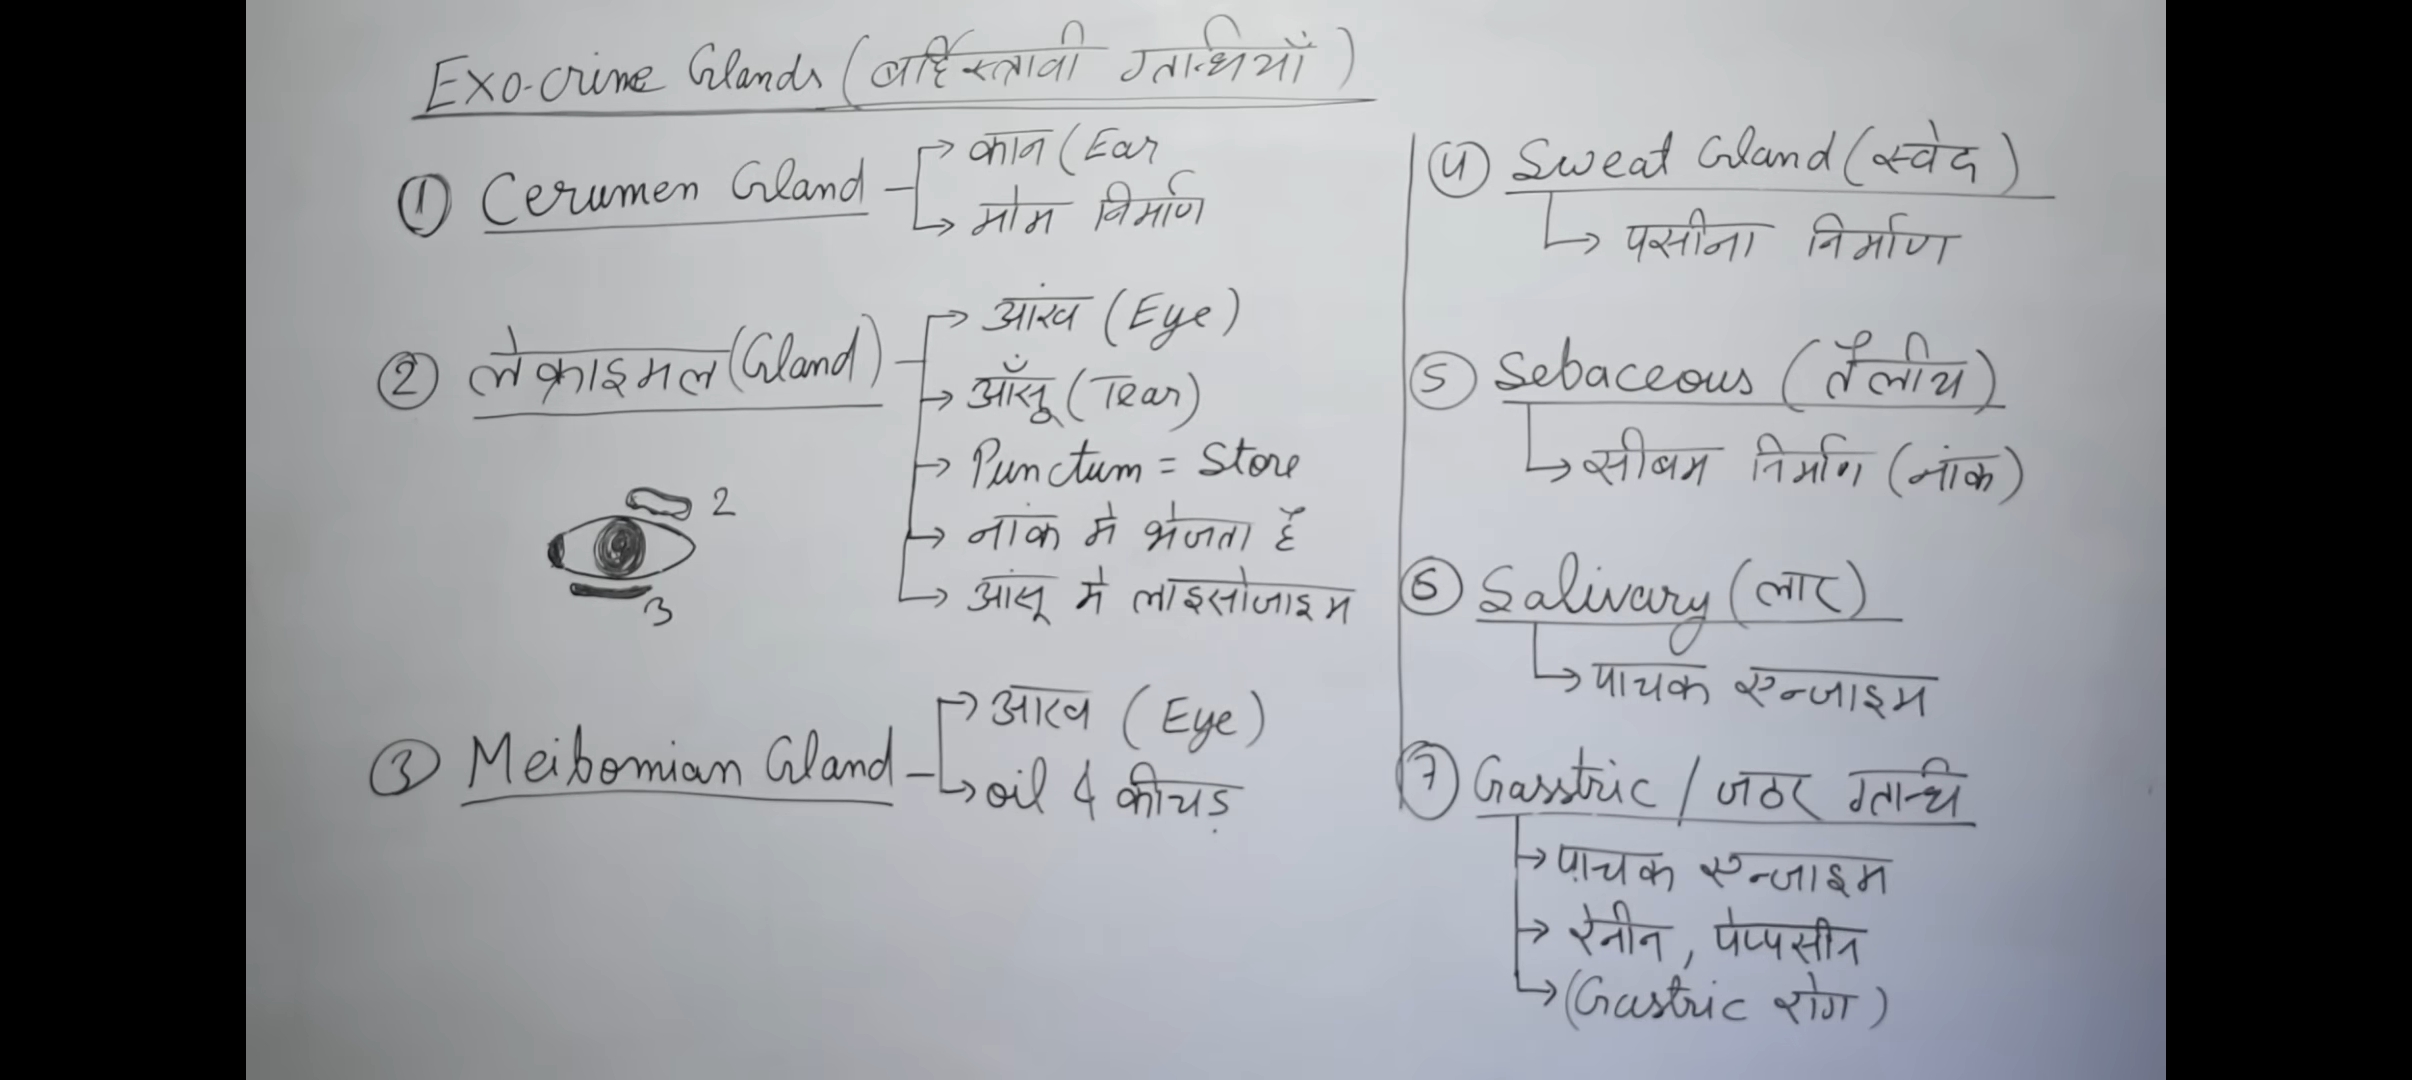 Exo-crine Glands (बहिस्त्रावी ग्रन्थियाँ)
① Cerumen Gland
→ कान (Ear
→ मोम निर्माण
② लेक्राइमल (Gland)
→ आंख (Eye)
→ आँसू (Tear)
→ Punctum = Store
→ नांक मे भेजता है
→ आंसू मे लाइसोजाइम
2
3
③ Meibomian Gland
→ आख (Eye)
→ oil & कीचड़
④ Sweat Gland (स्वेद)
→ पसीना निर्माण
⑤ Sebaceous (तैलीय)
→ सीबम निर्माण (नांक)
⑥ Salivary (लार)
→ पाचक एन्जाइम
⑦ Gasstric / जठर ग्रन्थि
→ पाचक एन्जाइम
→ रेनीन, पेप्पसीन
→ (Gastric रोग)